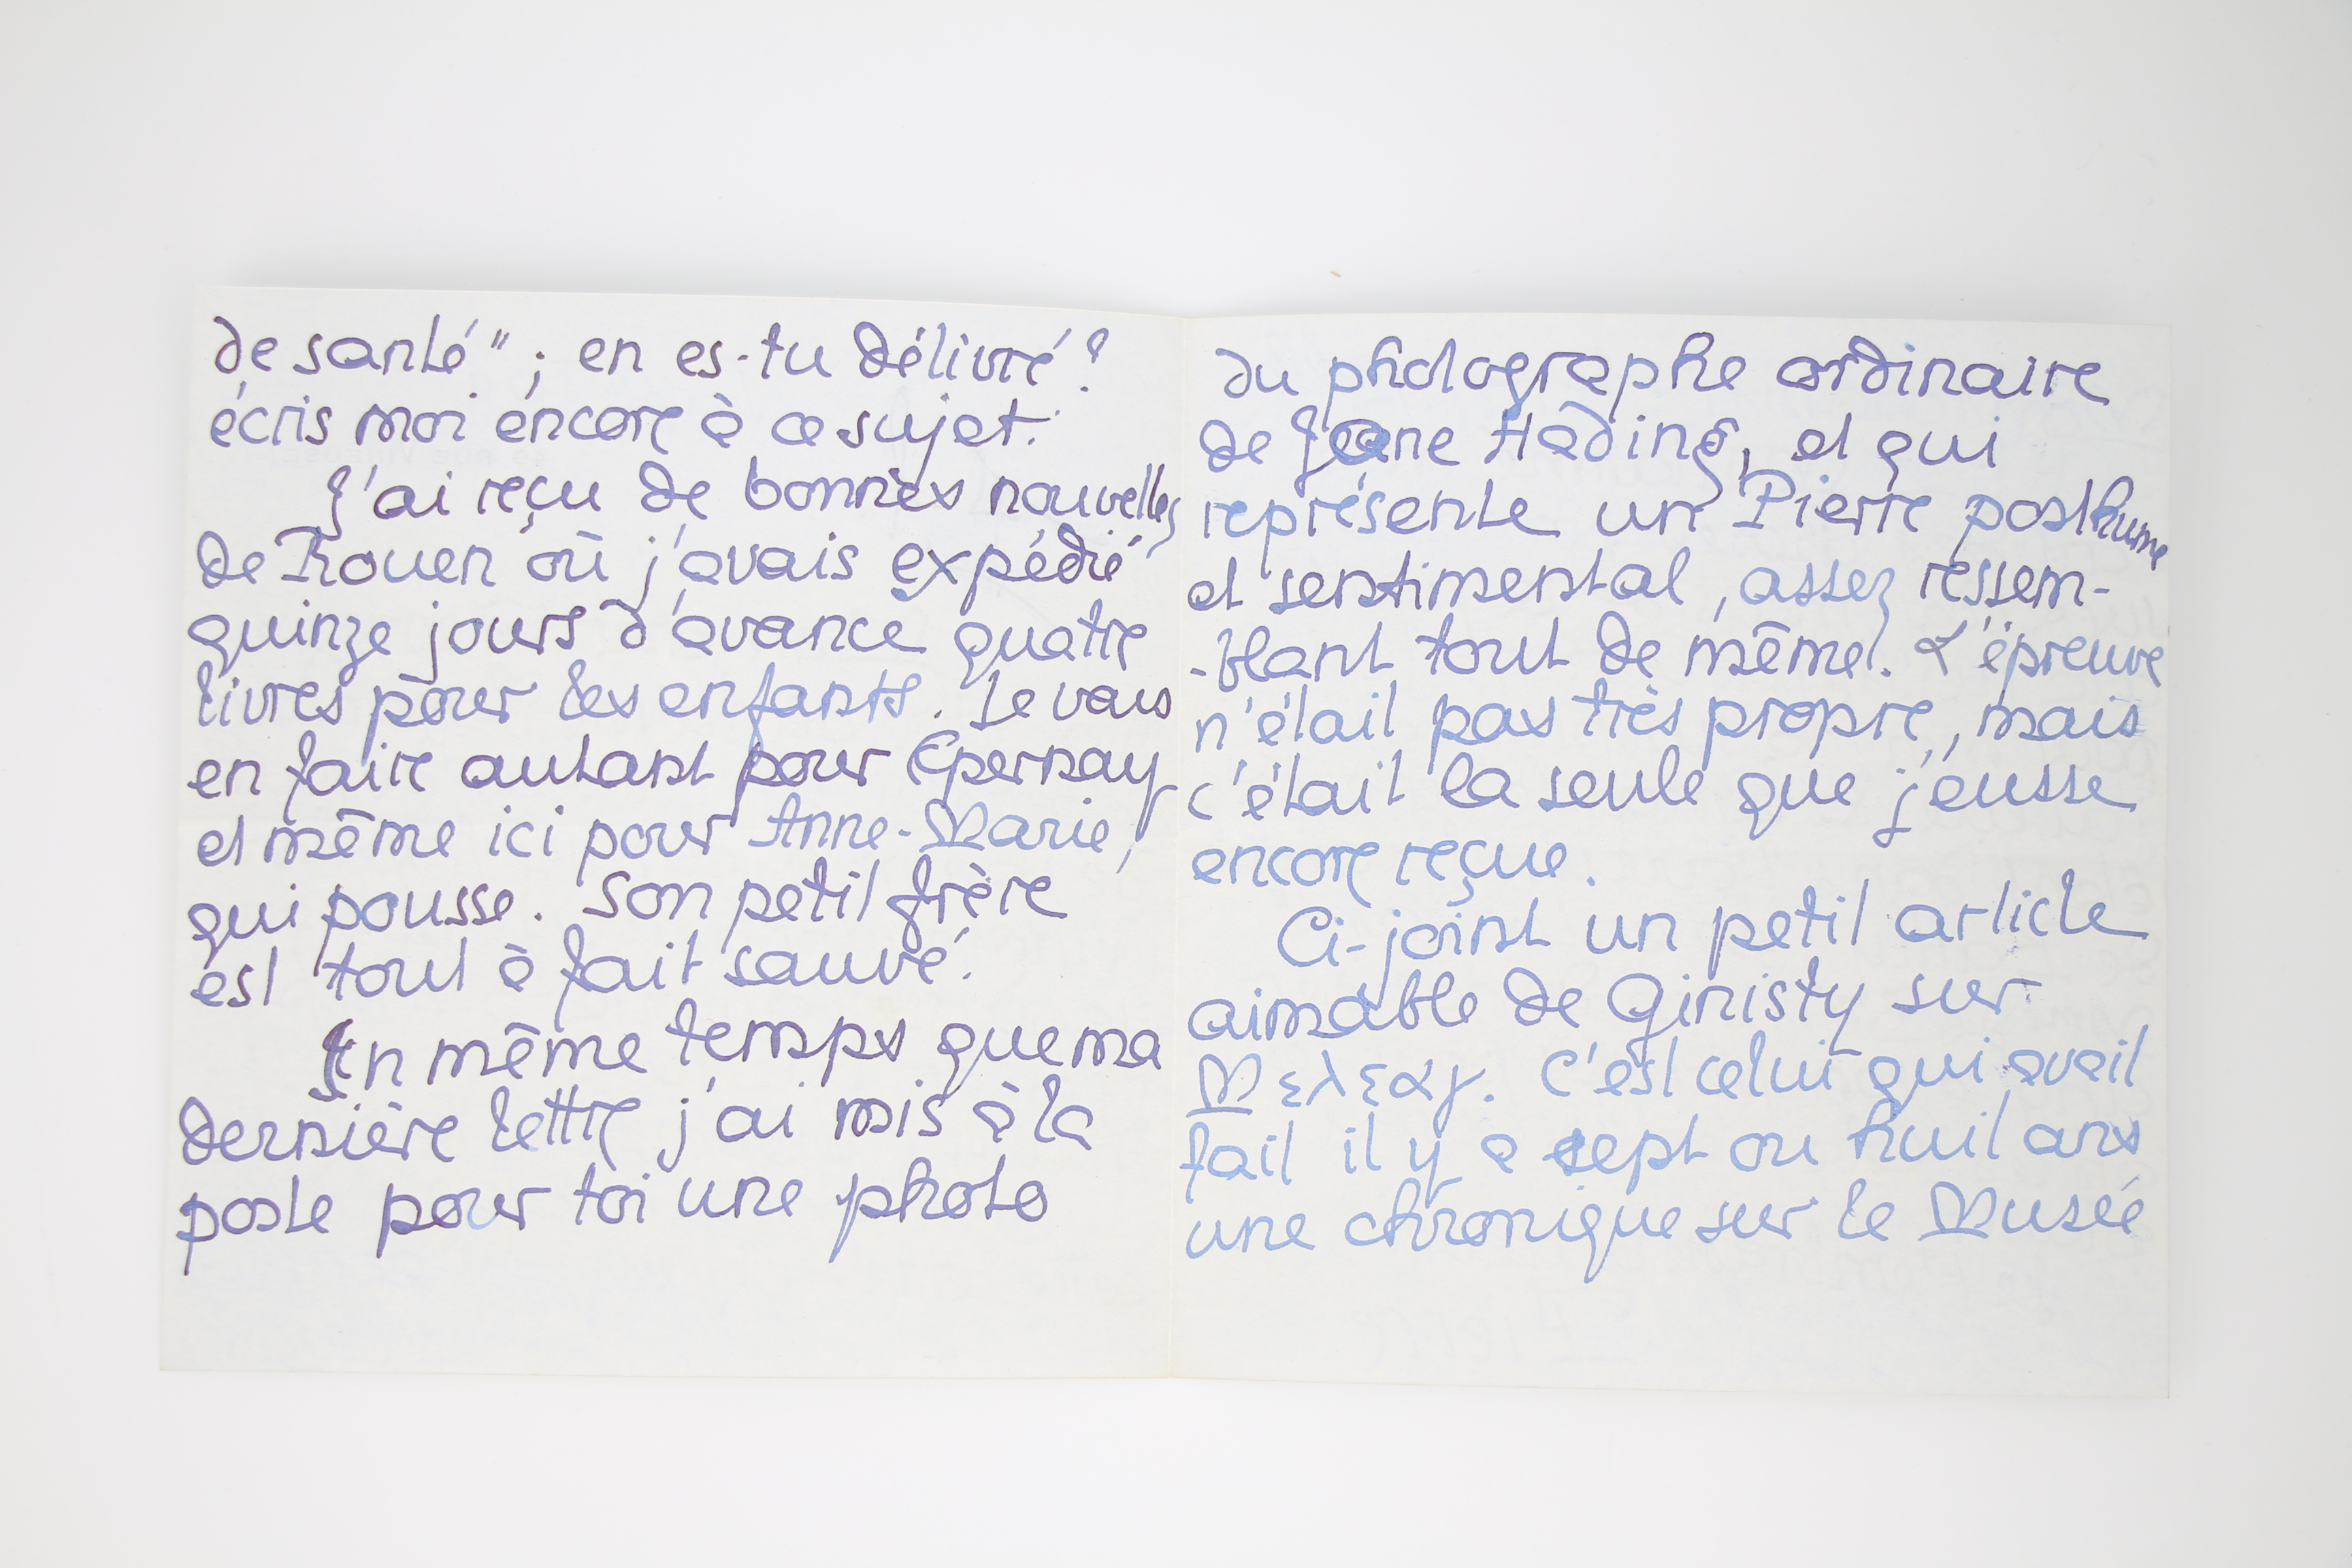 de santé" ; en es-tu délivré ?
écris moi encore à ce sujet.
J'ai reçu de bonnes nouvelles
de Rouen où j'avais expédié
quinze jours d'avance quatre
livres pour les enfants. Je vais
en faire autant pour Épernay
et même ici pour Anne-Marie,
qui pousse. Son petit frère
est tout à fait sauvé.
En même temps que ma
dernière lettre j'ai mis à la
poste pour toi une photo
du photographe ordinaire
de Jane Hading, et qui
représente un Pierre posthume
et sentimental, assez ressem-
-blant tout de même. L'épreuve
n'était pas très propre, mais
c'était la seule que j'eusse
encore reçue.
Ci-joint un petit article
aimable de Ginisty sur
Μελεαγ. C'est celui qui avait
fait il y a sept ou huit ans
une chronique sur le Musée